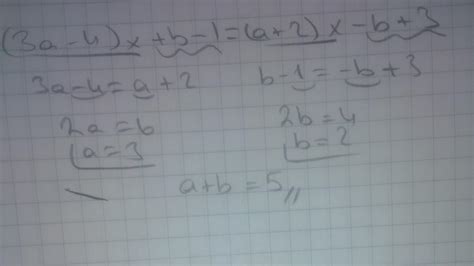 (3a-4)x+b-1=(a+2)x-b+3
3a-4=a+2 b-1=-b+3
2a=6 2b=4
a=3 b=2
a+b=5,,